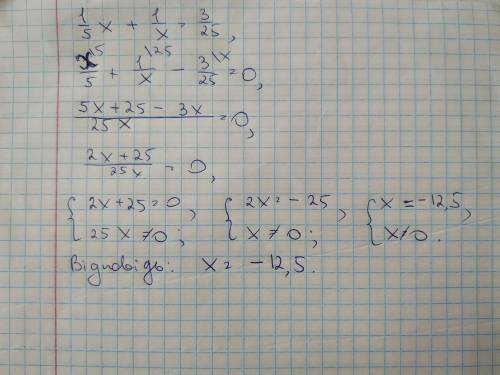 1/5 x + 1/x = 3/25,
x\5/5 + 1\25/x - 3\x/25 = 0,
5x + 25 - 3x/25x = 0,
2x + 25/25x = 0,
{2x + 25 = 0, 25x ≠ 0; {2x = -25, x ≠ 0; {x = -12,5, x ≠ 0.
Відповідь: x = -12,5.